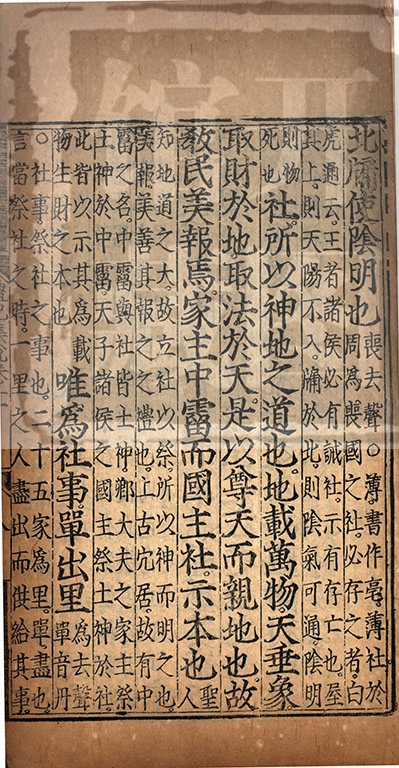 北牖使陰明也喪去聲○薄書作亳薄社於
周為喪國之社必存之者白
虎通云王者諸侯必有誡社示有存亡也屋
其上則天陽不入牖於北則陰氣可通陰明
則物
死也社所以神地之道也地載萬物天垂象
取財於地取法於天是以尊天而親地也故
教民美報焉家主中霤而國主社示本也聖
人
知地道之大故立社以祭所以神而明之也
美報美善其報之之禮也上古穴居故有中
霤之名中霤與社皆土神卿大夫之家主祭
土神於中霤天子諸侯之國主祭土神於社
此皆以示其為載
物生財之本也唯為社事單出里為去聲
單音丹
○社事祭社之事也二十五家為里單盡也
言當祭社之時一里之人盡出而供給其事